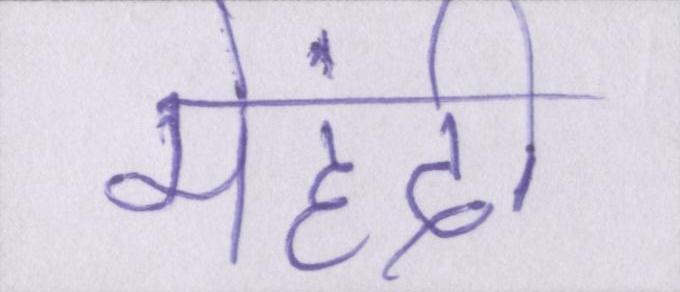 मेहंदी